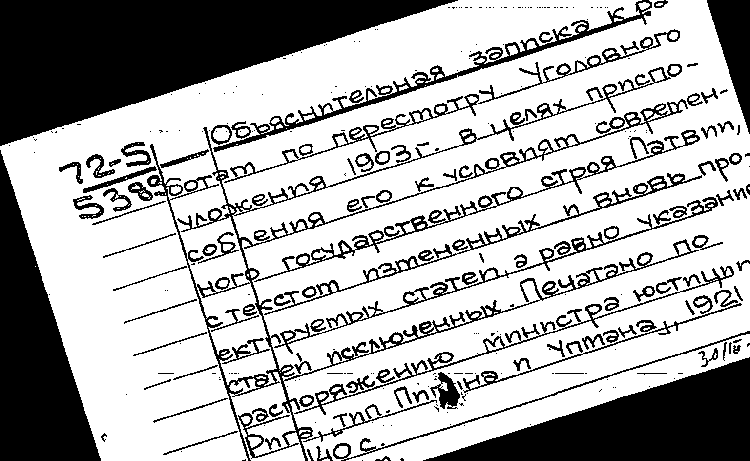 Объяснительная записка к ра
72-5 ботам по пересмотру Уголовного
5389 уложения 1903 г. в целях приспо-
собления его к условиям современ-
ного государственного строя Латвии,
с текстом измененных и вновь про-
ектируемых статей, а равно указание
статей исключенных. Печатано по
распоряжению министра юстиции
Рига, тип. и Улмана, 1921
140 с.
30/III